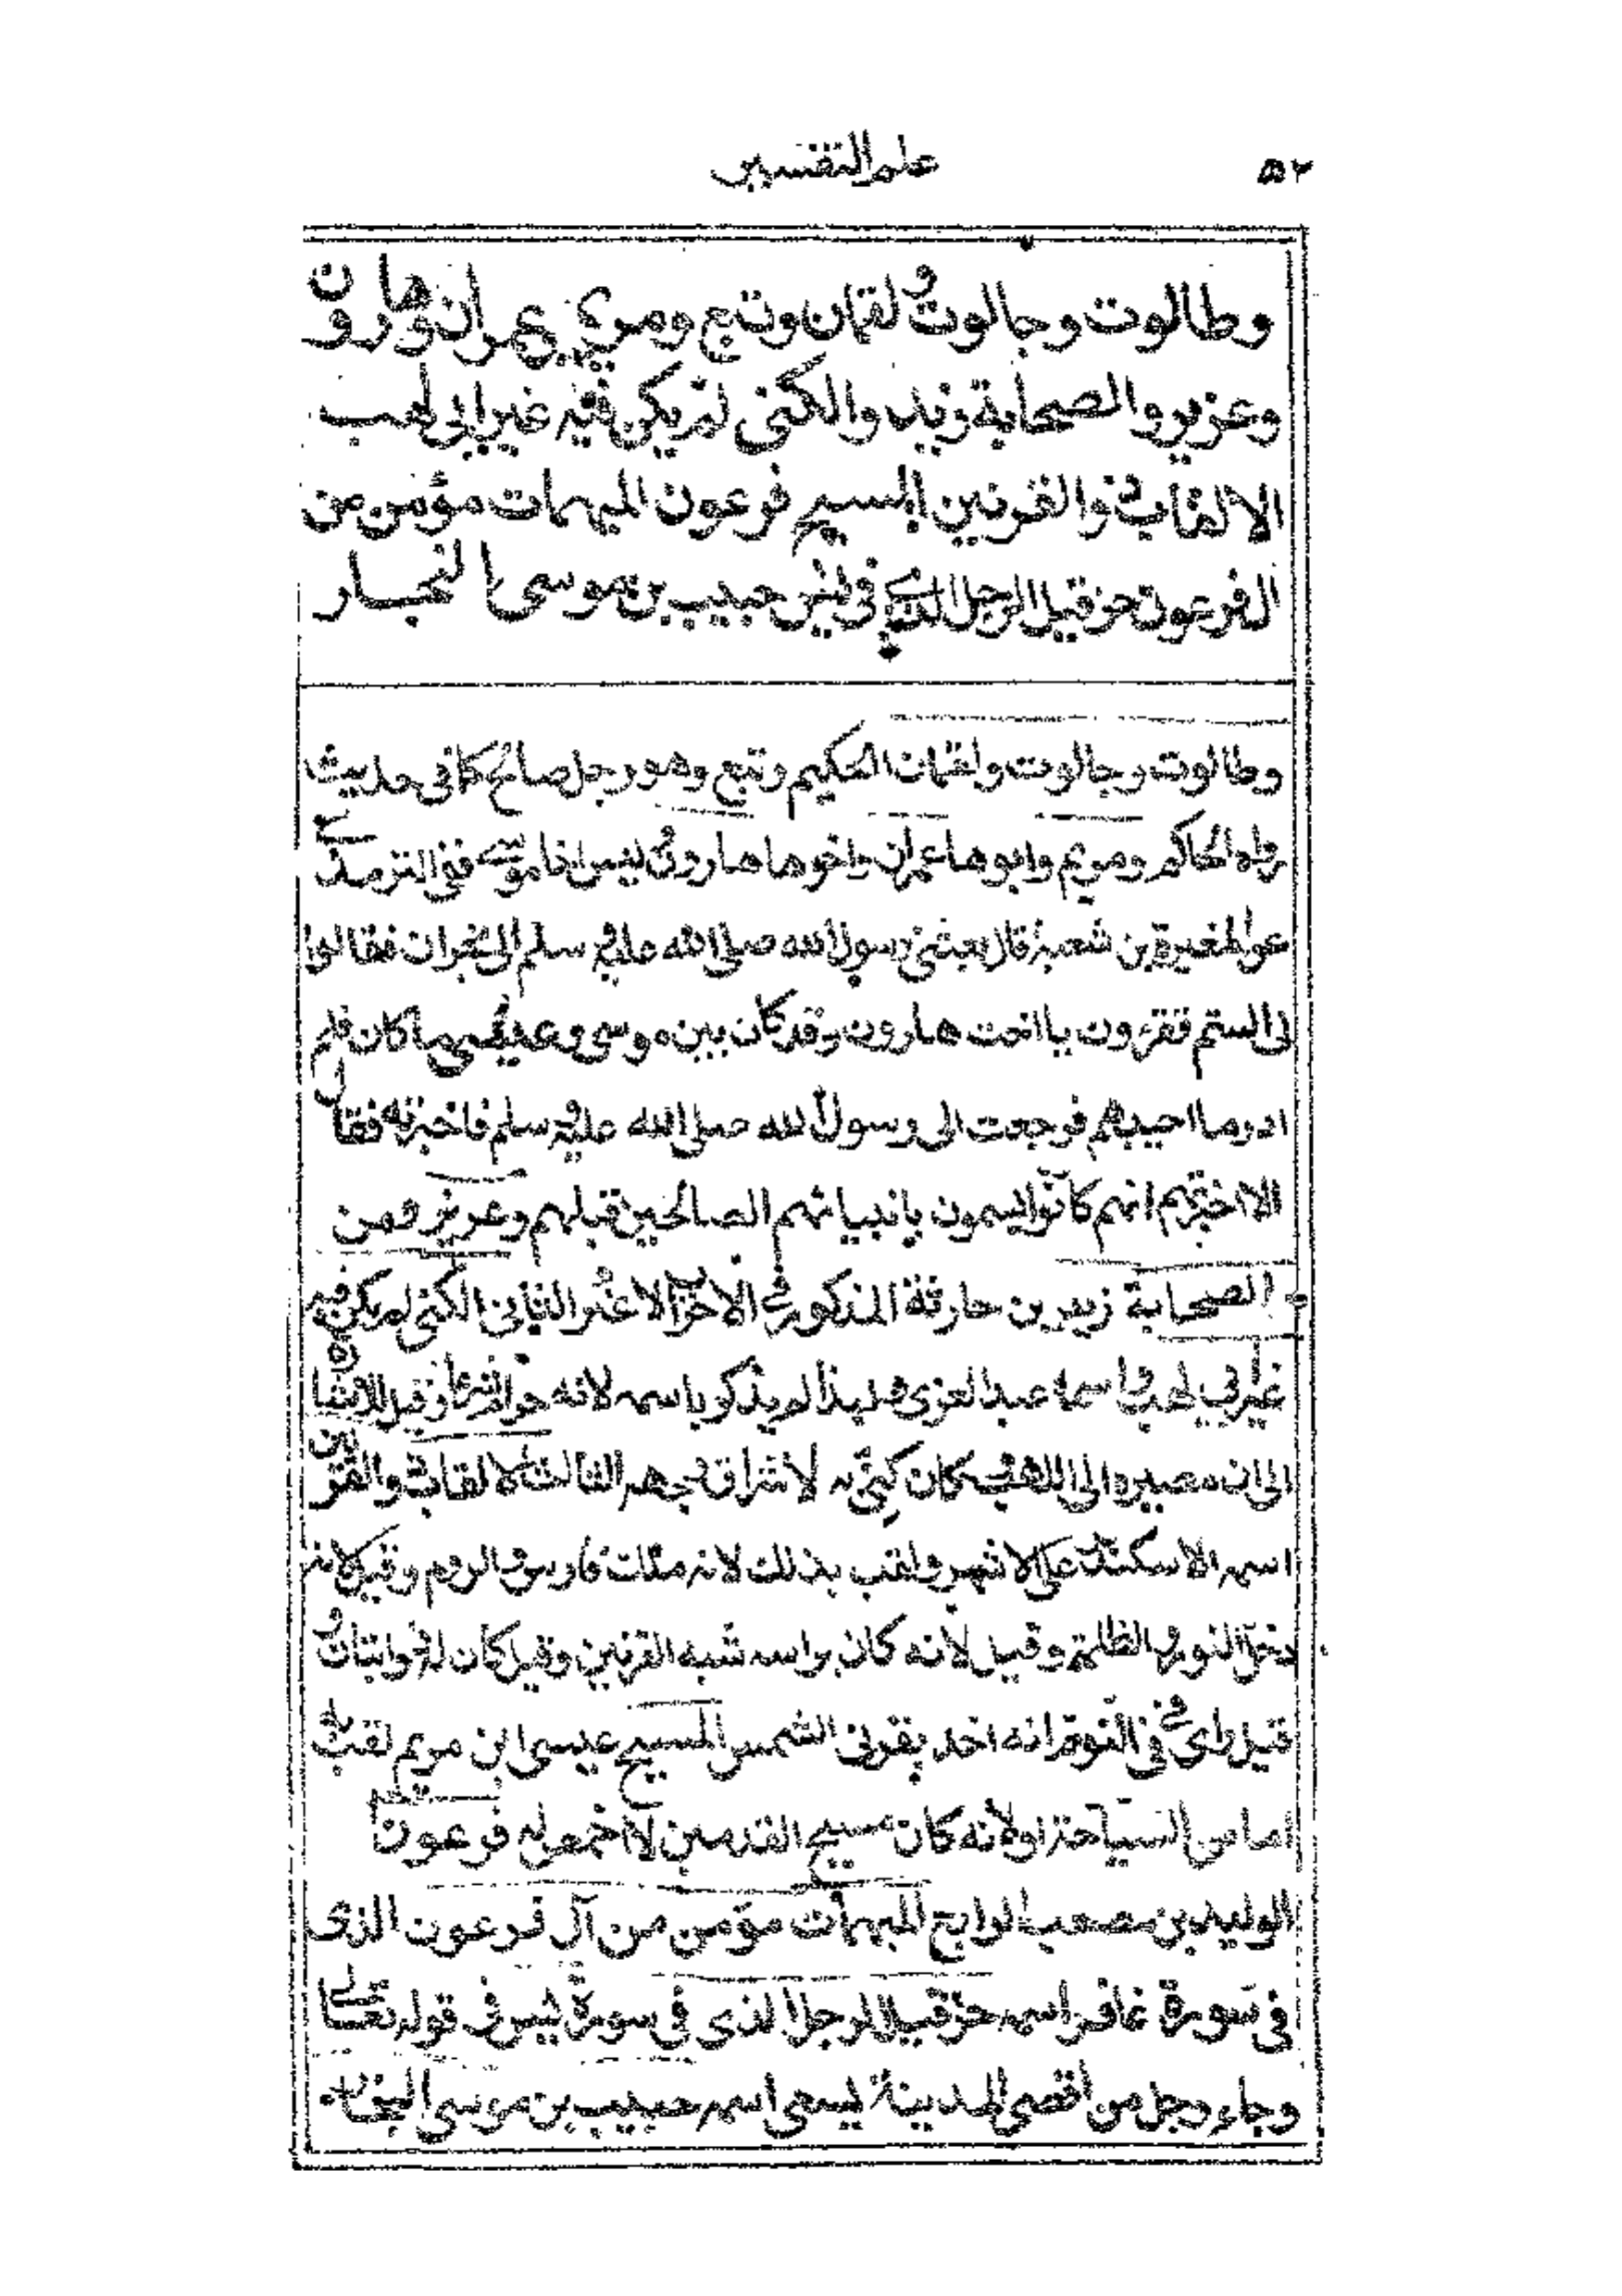 ٥٢
علم التفسير
وطالوت وجالوت ولقمان وتبع ومريم وعمران وهارون
وعزير والصحابة زيد والكنى لم يكن فيه غير ابي لهب
الالقاب ذو القرنين المسيح فرعون المبهمات مؤمن من
ال فرعون حزقيل الرجل الذي في يس حبيب بن موسى النجار
وطالوت وجالوت ولقمان الحكيم وتبع وهو رجل صالح كما في حديث
رواه الحاكم ومريم وابوها عمران واخوها هارون ليس اخا موسى ففي الترمذي
عن المغيرة بن شعبة قال بعثني رسول الله صلى الله عليه وسلم الى نجران فقالوا
لي الستم تقرءون يا اخت هارون وقد كان بين موسى وعيسى ما كان فلم
ادر ما اجيبهم فرجعت الى رسول الله صلى الله عليه وسلم فاخبرته فقال
الا اخبرتهم انهم كانوا يسمون بانبيائهم والصالحين قبلهم وعزير ومن
الصحابة زيد بن حارثة المذكور في الاحزاب لا غير الثاني الكنى لم يكن فيه
غير ابي لهب واسمه عبد العزى ولهذا لم يذكر باسمه لانه حرام شرعا وقيل للاشارة
الى ان مصيره الى اللهب وكان كني به لاشراق وجهه الثالث الالقاب ذو القرنين
اسمه الاسكندر على الاشهر ولقب بذلك لانه ملك فارس والروم وقيل لانه
دخل النور والظلمة وقيل لانه كان براسه شبه القرنين وقيل كان له ذوابتان و
قيل راى في النوم انه اخذ بقرني الشمس المسيح عيسى ابن مريم لقب به
اما من السياحة او لانه كان مسيح القدمين لا اخمص له فرعون
الوليد بن مصعب الرابع المبهمات مؤمن من آل فرعون الذى
في سورة غافر اسمه حزقيل الرجل الذي في سورة يس في قوله تعالى
وجاء رجل من اقصى المدينة يسعى اسمه حبيب بن موسى النجار